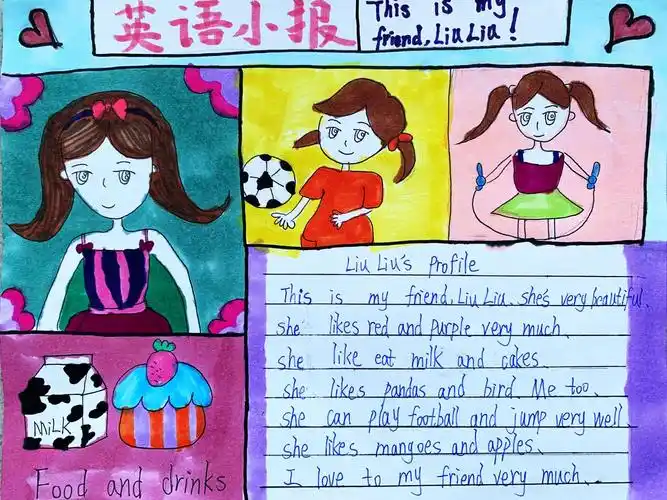 英语小报
This is my
friend, Liu Liu!
Liu Liu's Profile
This is my friend, Liu Liu. she's very beautiful.
she likes red and purple very much.
she like eat milk and cakes.
she likes pandas and bird. Me too.
she can play football and jump very well.
she likes mangoes and apples.
I love to my friend very much.
MiLK
Food and drinks